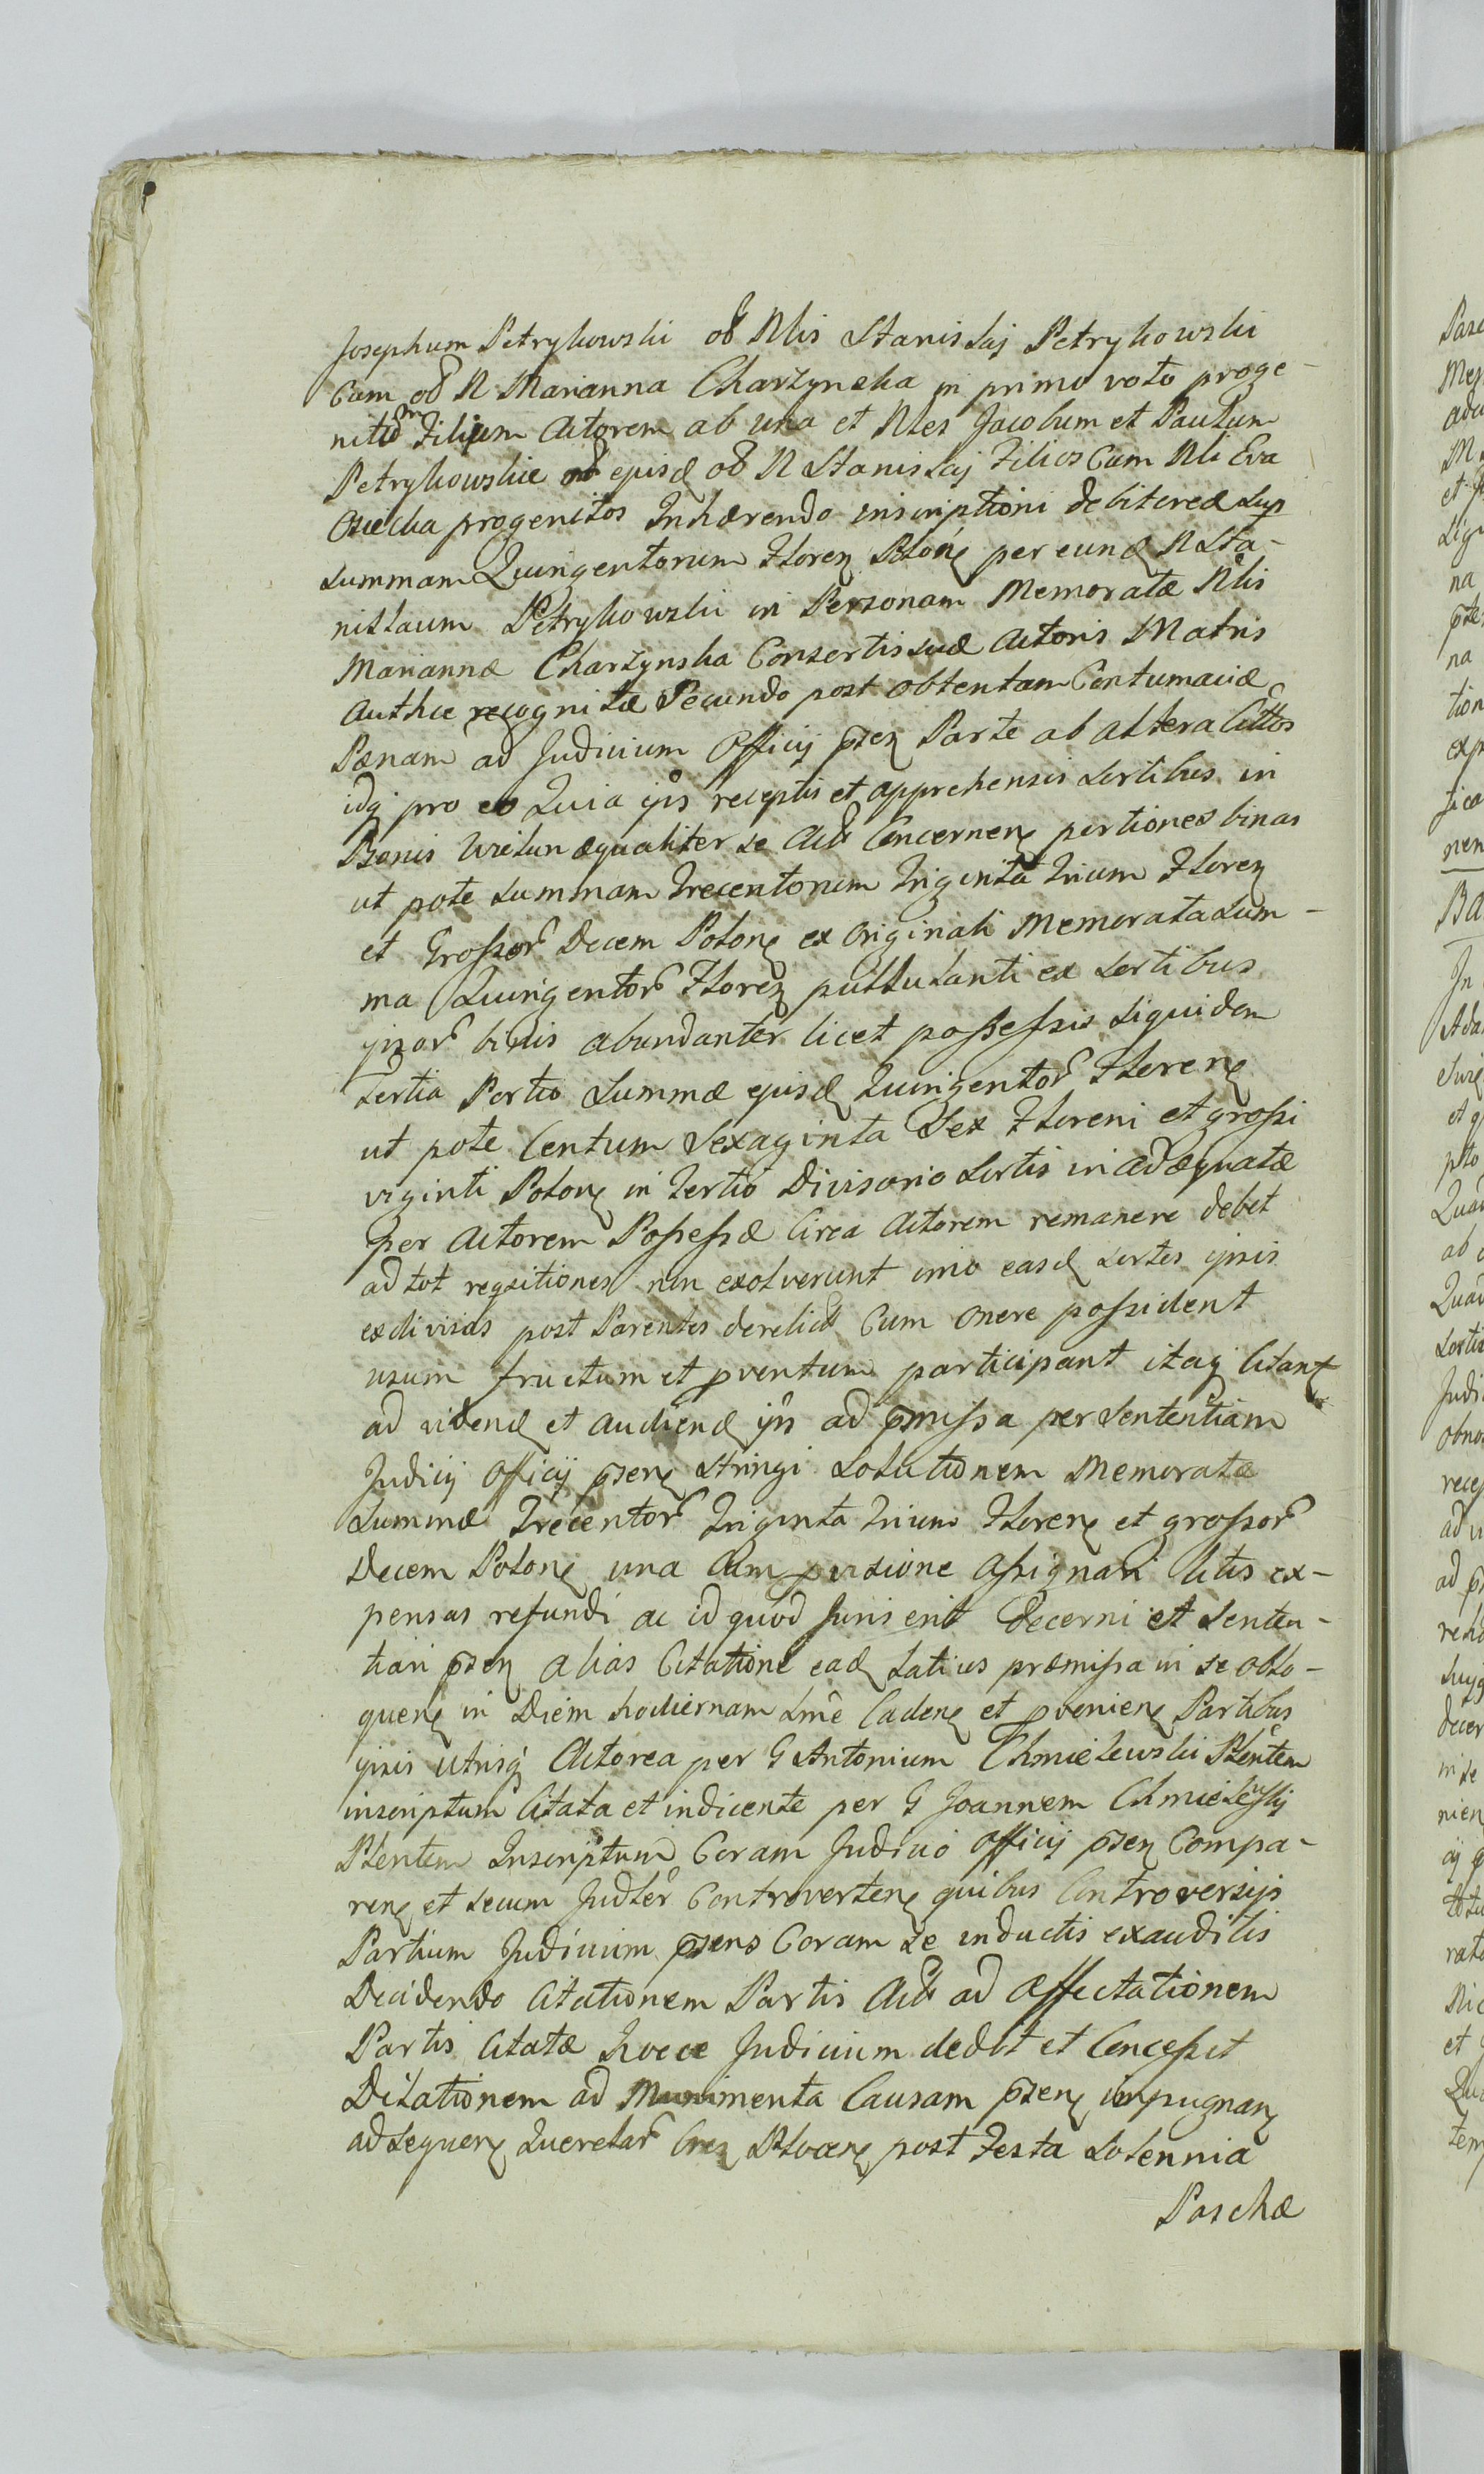 Josephum Petrykowski oб Nlis Stanislaj Petrykowski
Cum oб N Marianna Charzynska in primo voto proge-
nitum Filium Actorem ab una et Nles Jacobum et Paulum
Petrykowskie ejusd oб N Stanislaj Filios Cum Nli Eva
Osiecka progenitos Inhærendo inscriptioni debitoreæ sup
summam Quingentorum Floren Polon per eund N Sta-
nislaum Petrykowski in Personam Memoratæ Nlis
Mariannæ Charzynska Consortis suæ Actoris Matris
Authce recognitæ Secundo post obtentam Contumaciæ
Pænam ad Judicium Officij psen Parte ab altera Cittos
idq pro eo Quia ijs receptis et apprehensis sortibus in
Bonis æqualiter se Act Concernen portiones binas
ut pote summam Trecentorum Triginta Trium Floren
et Grossor Decem Polon ex originali Memorata sum-
ma Quingentor Floren pullulanti ex sortibus
ipsor binis abundanter licet possessis siquidem
tertia Portio summæ ejusd Quingentor Floren
ut pote Centum Sexaginta Sex Floreni et grossi
viginti Polon in Tertio Divisorio Sortis in adæquatæ
per Actorem Possessæ Circa Actorem remanere debet
ad tot reqsitiones non exolverunt imo easd sortes ipsis
exdivisas post Parentes derelict Cum onere possident
usum fructum et pventum participant itaq Citant
ad vidend et audiend ijs ad pmissa per Sententiam
Judicij Officij psen stringi Solutionem Memoratæ
Summæ Trecentor Triginta Trium Floren et grossor
Decem Polon una Cum pvisione assignari litis ex-
pensas refundi ac id quod Juris erit decerni et senten-
tiari psen alias Citatione ead latius præmissa in se oblo-
quen in Diem hodiernam Lme Caden et pvenien Partibus
ipsis utrisq Actorea per G Antonium Chmielewski Plentem
inscriptum Citata et indicente per G Joannem Chmielewskij
Plentem Inscriptum Coram Judicio Officij psen Compa-
ren et secum Judler Controverten quibus Controversijs
Partium Judicium psens Coram se inductis exauditis
Decidendo Citationem Partis Act ad affectationem
Partis Citatæ hocce Judicium dedit et Concessit
Dilationem ad Munimenta Causam psen impugnan
ad sequen Querelar post Festa Solennia
Paschæ